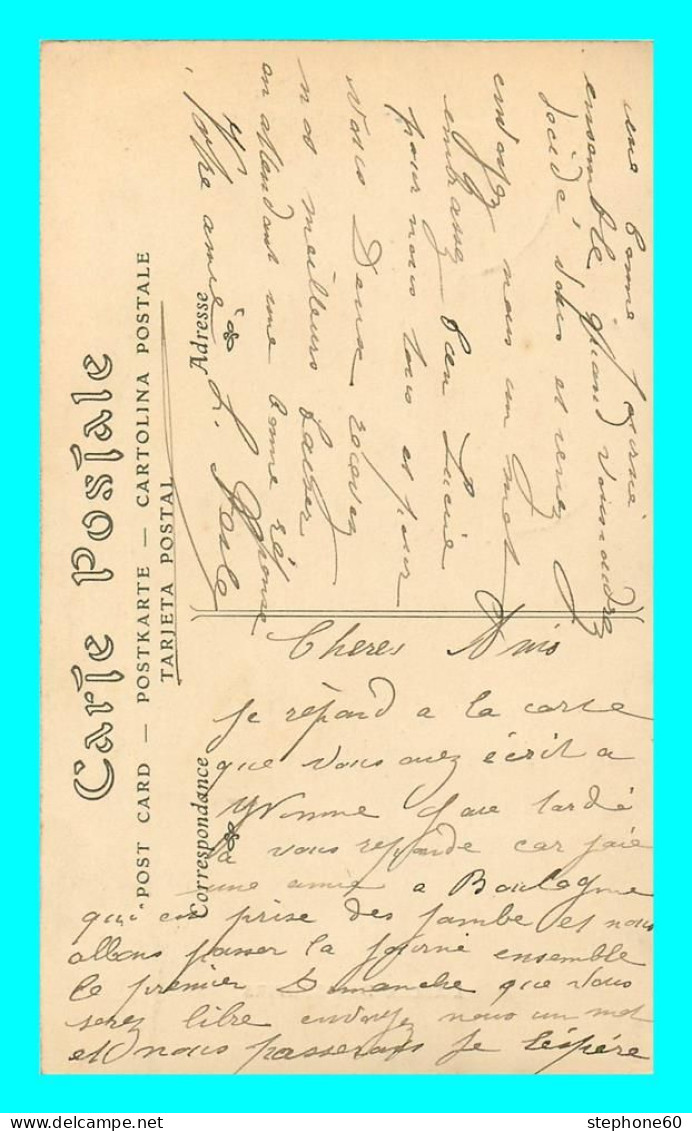 Carte Postale
POST CARD — POSTKARTE — CARTOLINA POSTALE
TARJETA POSTAL
Correspondance
Adresse
Cheres Amis
Je répond a la carte
que vous avez écrit a
Yvonne jaie tardé
a vous reponde car jaie
une amie a Boulogne
qui est prise des jambe et nous
allons passer la journé ensemble
le premier Dimanche que vous
serez libre envoyez nous un mot
et nous passerons je l'éspére
une bonne
ensemble quand vous
décidé vous et venez
envoyez nous un mot
embrassez bien Lucie
pour nous tous et pour
vous Deux recevez
nos meilleurs baiser
en attendant une bonne réponse
Votre amie L.
stephone60